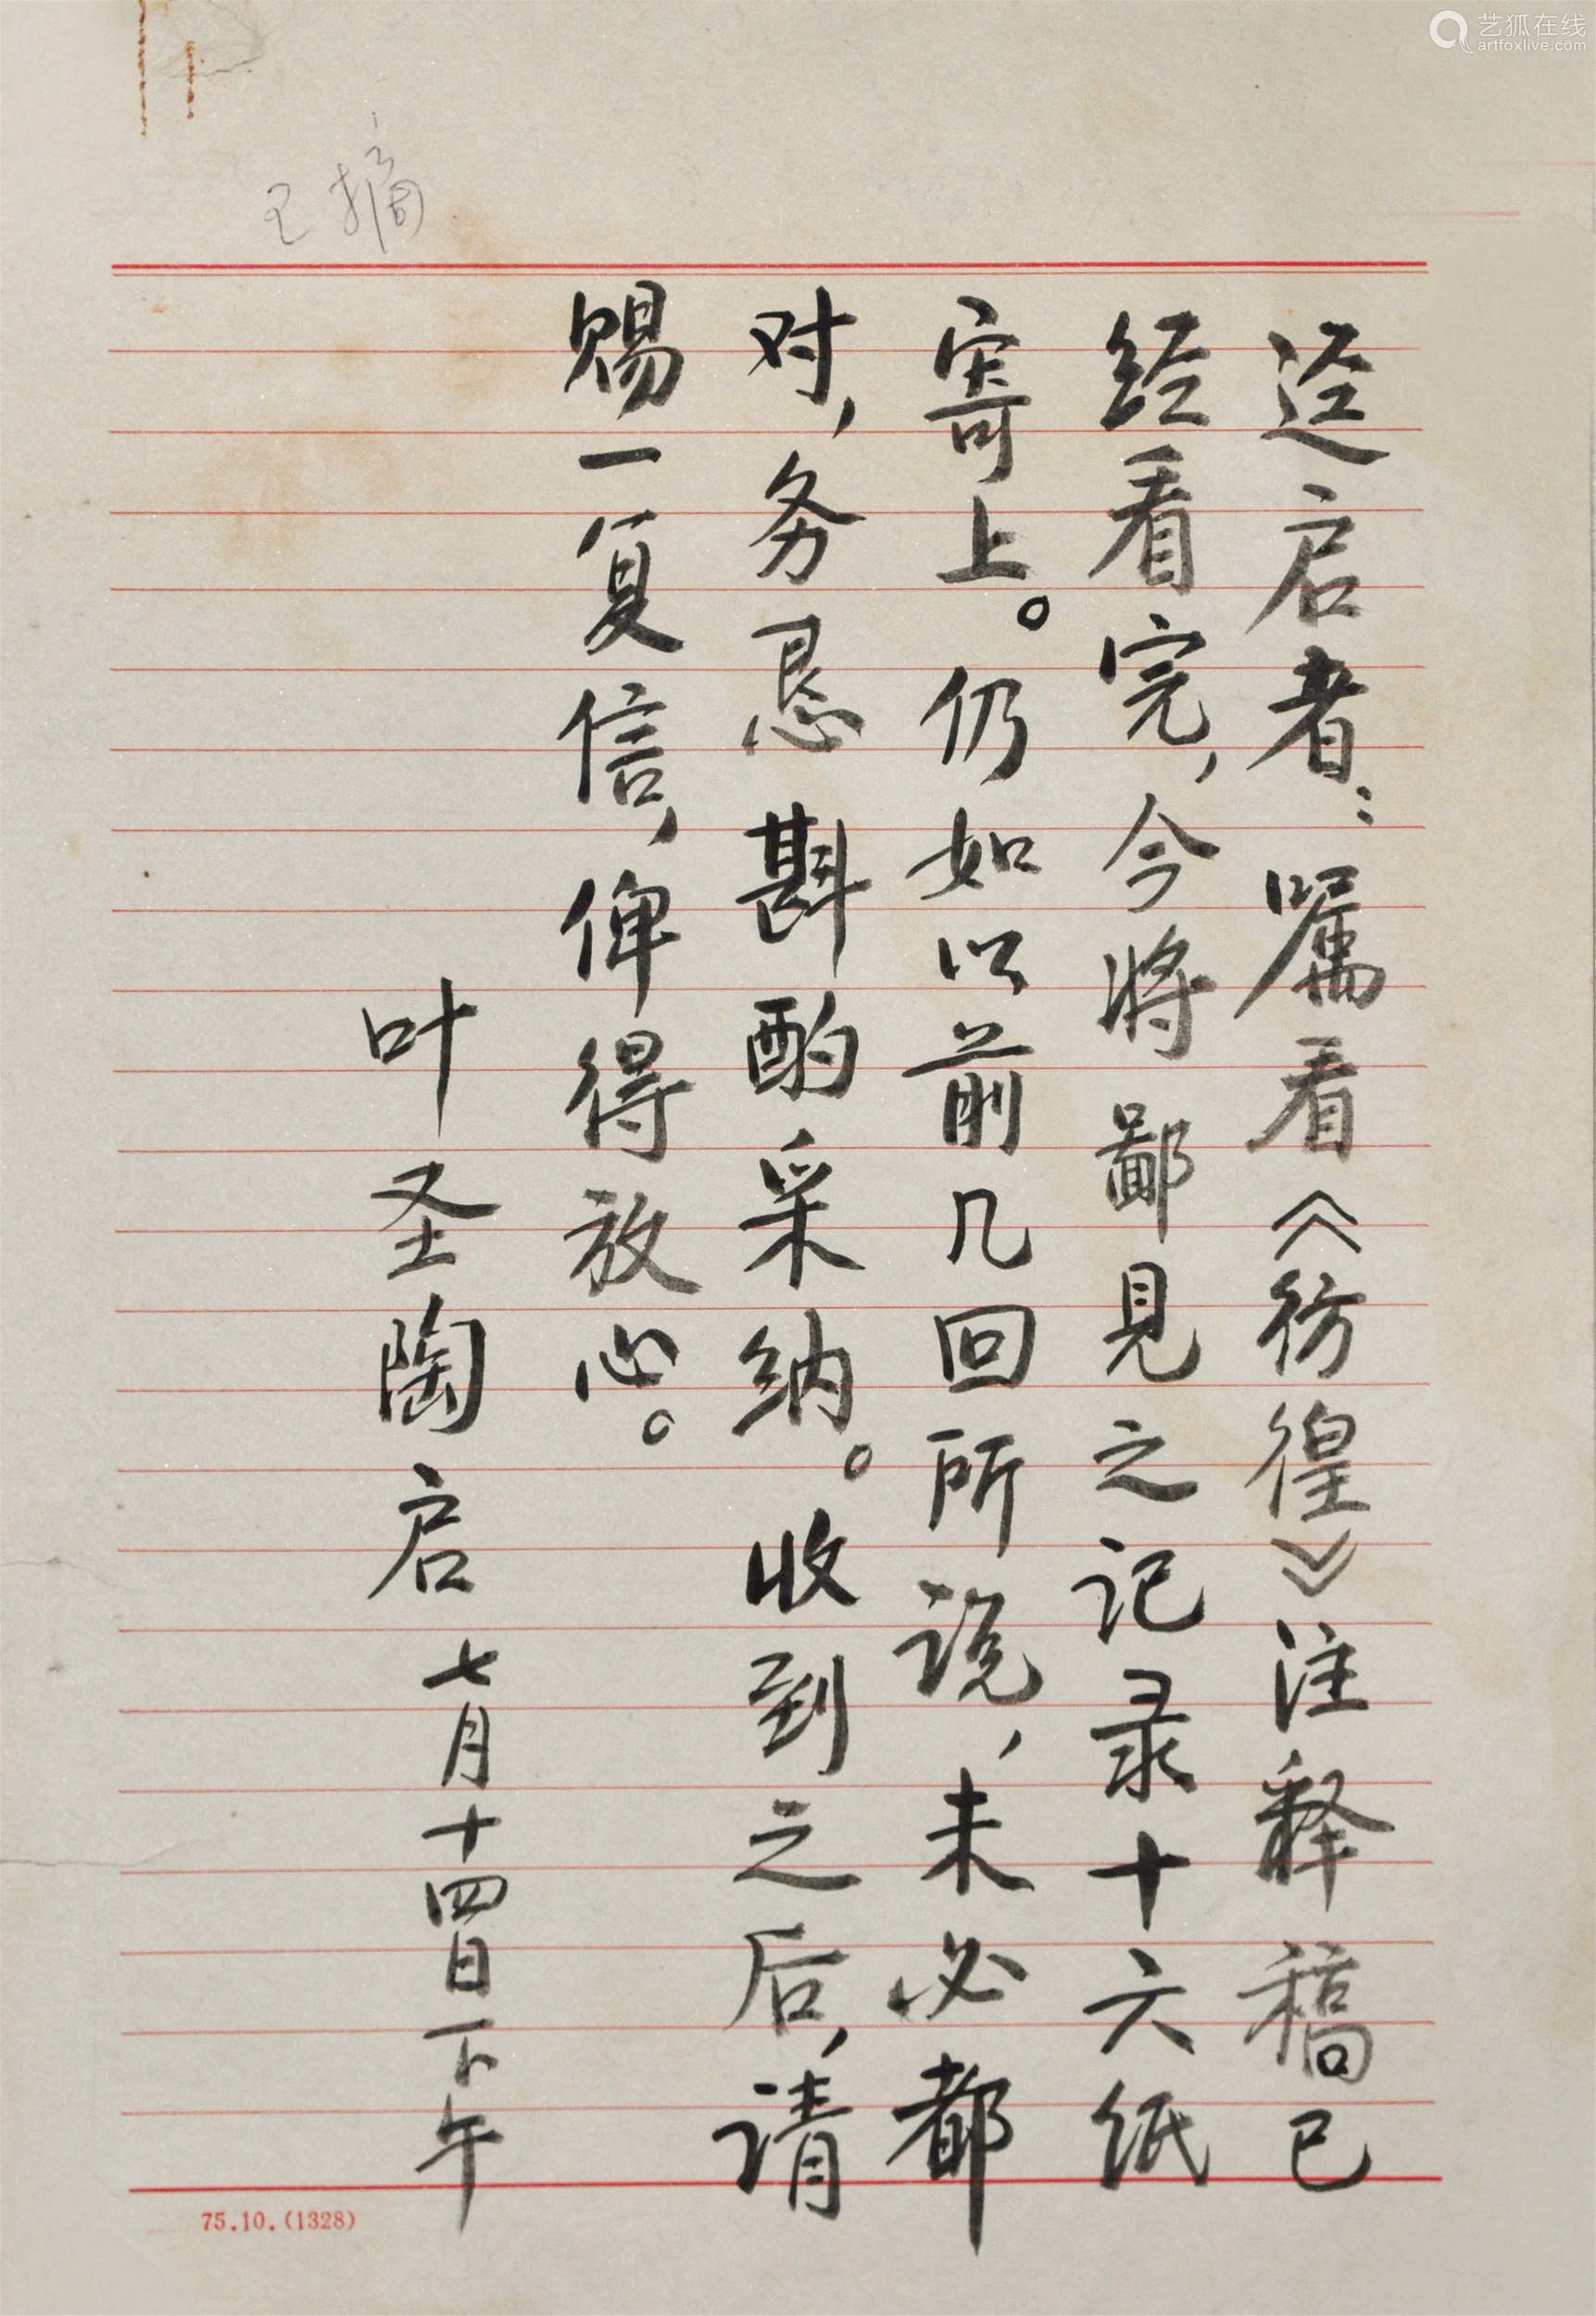 艺狐在线
artfoxlive.com
已摘
迳启者：嘱看《彷徨》注释稿已
经看完，今将鄙见之记录十六纸
寄上。仍如以前几回所说，未必都
对，务恳斟酌采纳。收到之后，请
赐一复信，俾得放心。
叶圣陶启 七月十四日下午
75.10.(1328)